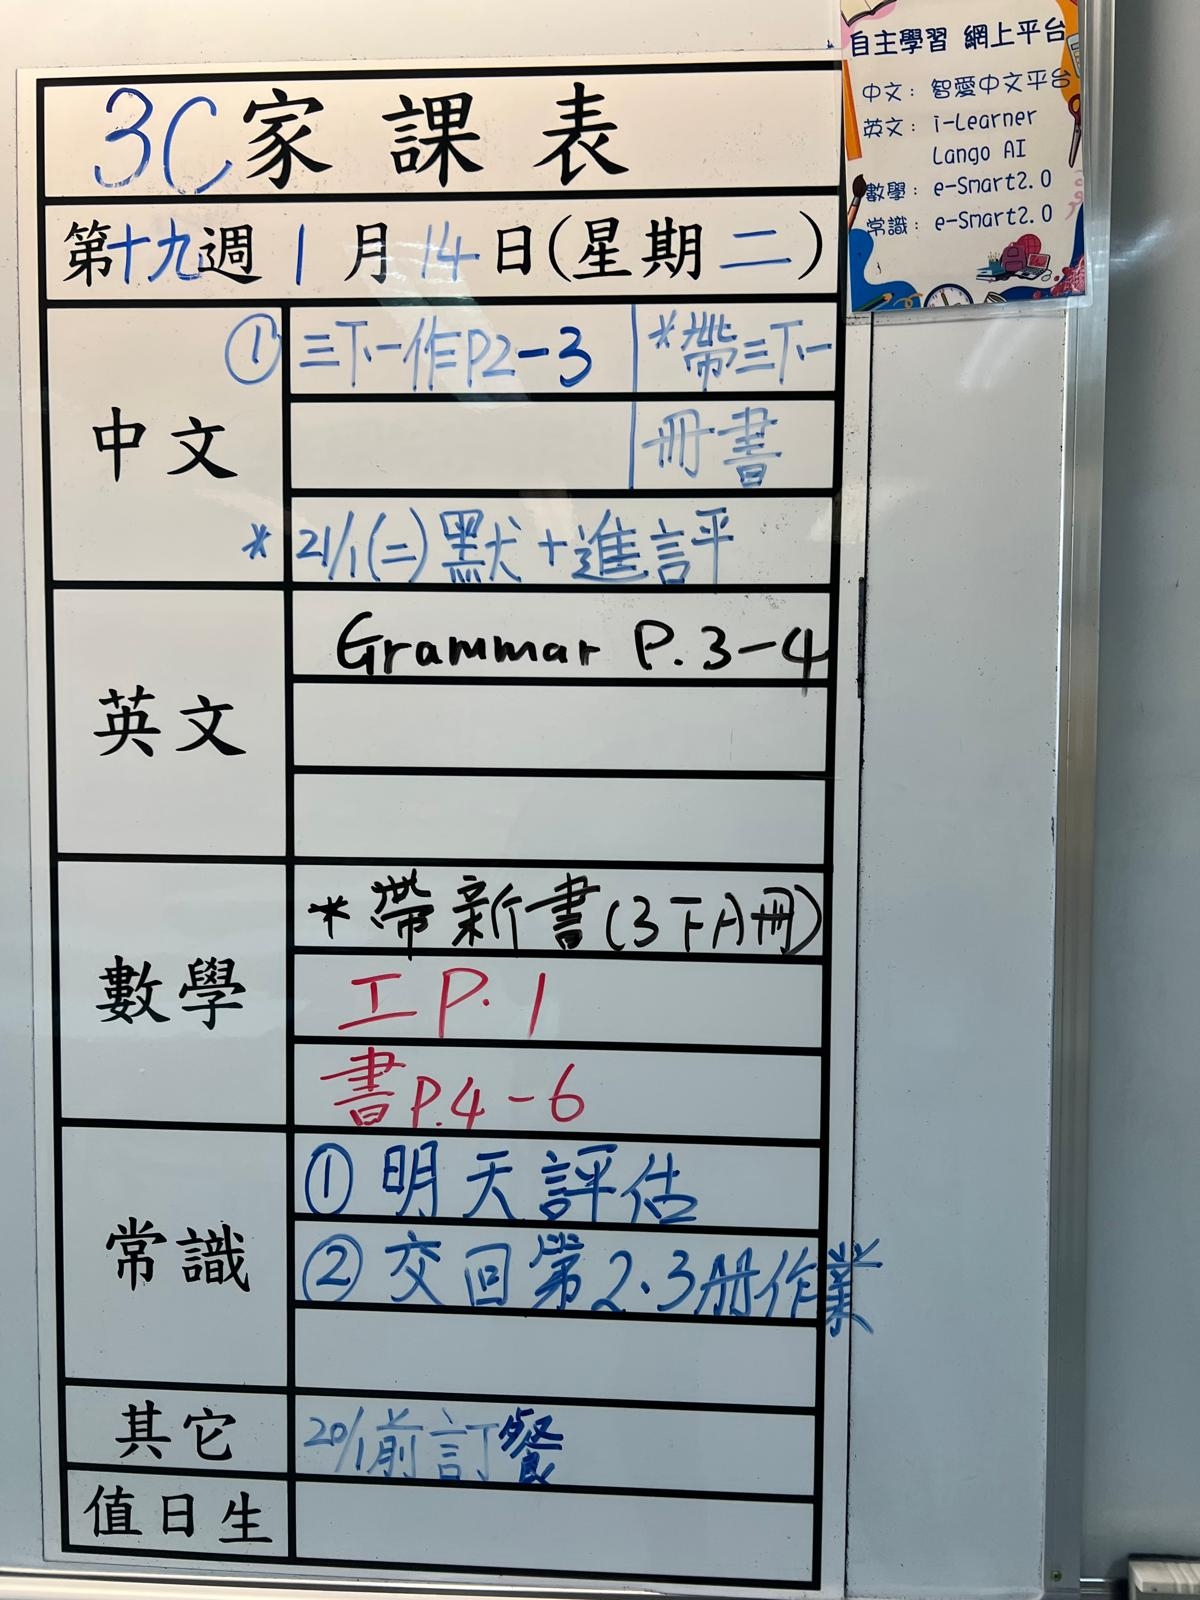 3C家課表
第十九週1月14日(星期二)
中文
① 三下一作P2-3
*帶三下一
冊書
* 21/1(二)默+進評
英文
Grammar P.3-4
數學
*帶新書(3下A冊)
工P.1
書P.4-6
常識
①明天評估
②交回第2.3冊作業
其它
20/1前訂餐
值日生
自主學習 網上平台
中文: 智愛中文平台
英文: i-Learner
Lango AI
數學: e-Smart2.0
常識: e-Smart2.0